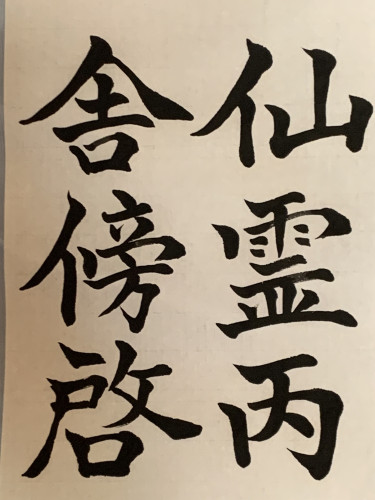 仙霊丙
舎傍啓